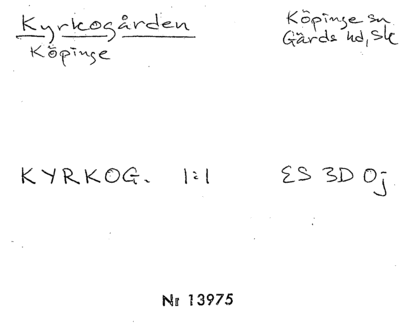 Kyrkogården
Köpinge
Köpinge sn
Gärds hd, Sk
KYRKOG. 1:1 ES 3D 0j
Nr 13975